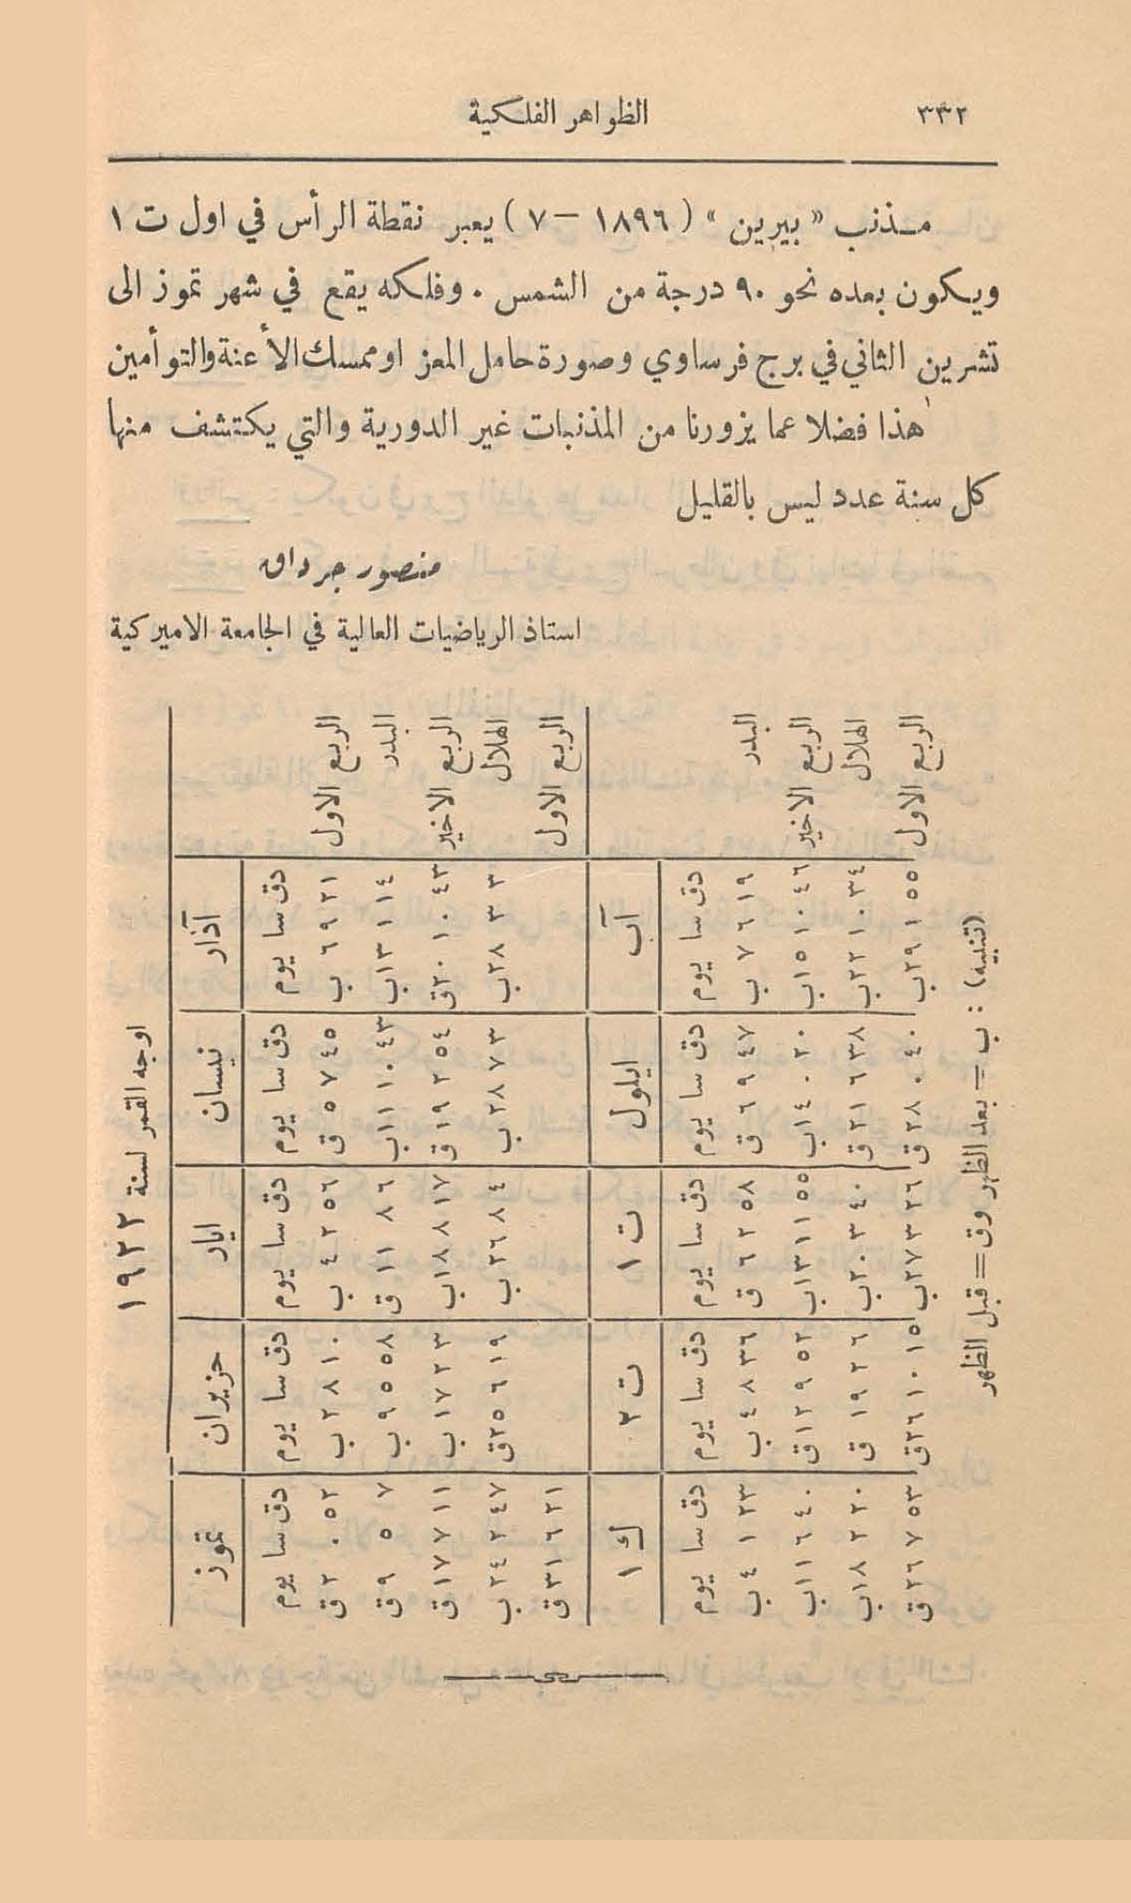 ٣٣٢
الظواهر الفلكية
مذنب « بيرين » ( ١٨٩٦ – ٧ ) يعبر نقطة الرأس في اول ت ١
ويكون بعده نحو ٩٠ درجة من الشمس . وفلكه يقع في شهر تموز الى
تشرين الثاني في برج فرساوي وصورة حامل المعز او ممسك الأعنة والتوأمين
هذا فضلا عما يزورنا من المذنبات غير الدورية والتي يكتشف منها
كل سنة عدد ليس بالقليل
منصور جرداق
استاذ الرياضيات العالية في الجامعة الاميركية
اوجه القمر لسنة ١٩٢٢
آذار نيسان ايار حزيران تموز
دق سا يوم دق سا يوم دق سا يوم دق سا يوم دق سا يوم
الربع الاول ٢١ ٩ ٦ ب ٤٥ ٧ ٥ ق ٥٦ ٢ ٤ ب ١٠ ٨ ٢ ب ٥٢ ٠ ٢ ق
البدر ١٤ ١ ١٣ ب ٤٣ ١٠ ١١ ب ٦ ٨ ١١ ق ٥٨ ٥ ٩ ب ٧ ٥ ٩ ق
الربع الاخير ٤٣ ١٠ ٢٠ ق ٥٤ ٢ ١٩ ق ١٧ ٨ ١٨ ب ٣ ٢ ١٧ ب ١١ ٧ ١٧ ق
الهلال ٣ ٣ ٢٨ ب ٣ ٧ ٢٨ ب ٤ ٨ ٢٦ ب ١٩ ٦ ٢٥ ق ٤٧ ٢ ٢٤ ب
الربع الاول ٢١ ٦ ٣١ ق
آب ايلول ت ١ ت ٢ ك ١
دق سا يوم دق سا يوم دق سا يوم دق سا يوم دق سا يوم
البدر ١٩ ٦ ٧ ب ٤٧ ٩ ٦ ق ٥٨ ٢ ٦ ق ٣٦ ٨ ٤ ب ٢٣ ١ ٤ ب
الربع الاخير ٤٦ ١٠ ١٥ ب ٢٠ ٠ ١٤ ب ٥٥ ١١ ١٣ ب ٥٢ ٩ ١٢ ق ٤٠ ٦ ١١ ب
الهلال ٣٤ ١٠ ٢٢ ب ٣٨ ٦ ٢١ ق ٤٠ ٣ ٢٠ ب ٦ ٢ ١٩ ق ٢٠ ٢ ١٨ ب
الربع الاول ٥٥ ١ ٢٩ ب ٤٠ ٠ ٢٨ ق ٢٦ ٣ ٢٧ ب ١٥ ١٠ ٢٦ ق ٥٣ ٧ ٢٦ ق
(تنبيه) : ب = بعد الظهر وق = قبل الظهر